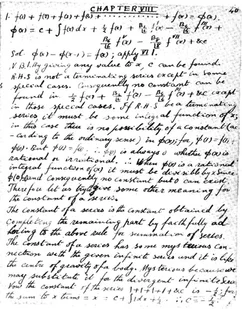 CHAPTER VIII
1. f(1) + f(2) + f(3) + f(4) + ... + f(x) = φ(x)
φ(x) = c + ∫f(x)dx + ½ f(x) + B₂/⌊2 f'(x) - B₄/⌊4 f'''(x) + B₆/⌊6 f^V(x) - B₈/⌊8 f^VII(x) + &c
Sol. φ(x) - φ(x-1) = f(x); apply VI 1.
N.B. By giving any value to x, c can be found.
R.H.S. is not a terminating series except in some
special cases. Consequently no constant can be
found in ½ f(x) + B₂/⌊2 f'(x) - B₄/⌊4 f'''(x) + &c except
in those special cases. If R.H.S. be a terminating
series it must be some integral function of x;
in this case there is no possibility of a constant (ac-
-cording to the ordinary sense) in
rational or irrational. ∴ When φ(x) is a rational
integral function of x it must be divisible by x. Since
and consequently no constant but 0 can exist.
Therefore let us give some other meaning for
the constant of a series.
The constant of a series is the constant obtained by
completing the remaining part by faithfully ad-
hering to the above rule for summation of series.
The constant of a series has some mysterious con-
nection with the given infinite series and it is like
the centre of gravity of a body. Mysterious because we
may substitute it for the divergent infinite series.
Now the constant of the series 1+1+1+1+&c is -½; for
the sum to x terms = x = c + ∫dx + ½. ∴ c = -½.